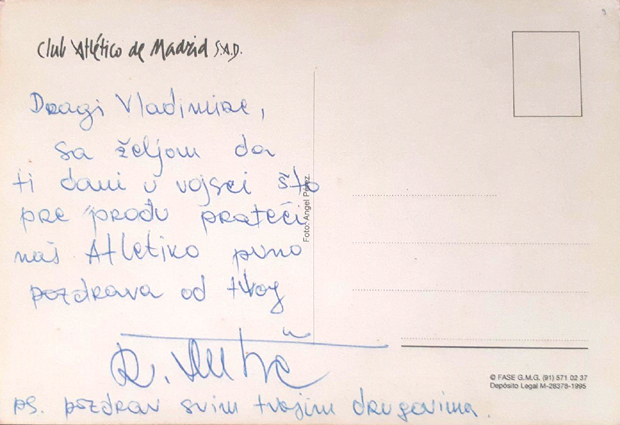 Club Atlético de Madrid S.A.D.
Dragi Vladimire,
sa željom da
ti dani u vojsci što
pre prođu prateći
naš Atletiko puno
pozdrava od tvog
R. Antić
ps. pozdrav svim tvojim drugovima.
Foto: Angel Pérez
© FASE G.M.G. (91) 571 02 37
Depósito Legal M-28378-1995